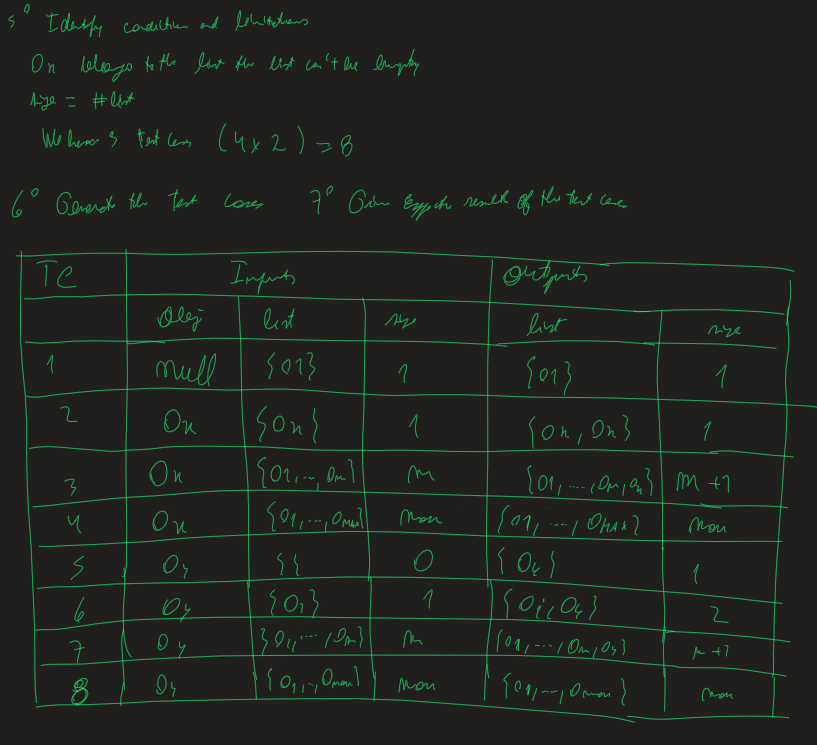 5° Identify condition and limitations
On belongs to the list the list can't be empty
size = #list
We have 8 test cases (4x2) = 8
6° Generate the test cases 7° Give Expecte result of the test cases
TC Inputs Outputs
Obj list size list size
1 null {01} 1 {01} 1
2 On {On} 1 {On, On} 1
3 On {01, ..., Om} m {01, ...., Om, On} m +1
4 On {01, ..., Omax} max {01, ..., Omax} max
5 Oy {} 0 {Oy} 1
6 Oy {O1} 1 {Oi, Oy} 2
7 Oy {01, ..., Om} m {01, ..., Om, Oy} m +1
8 Oy {01, .., Omax} max {01, ..., Omax} max